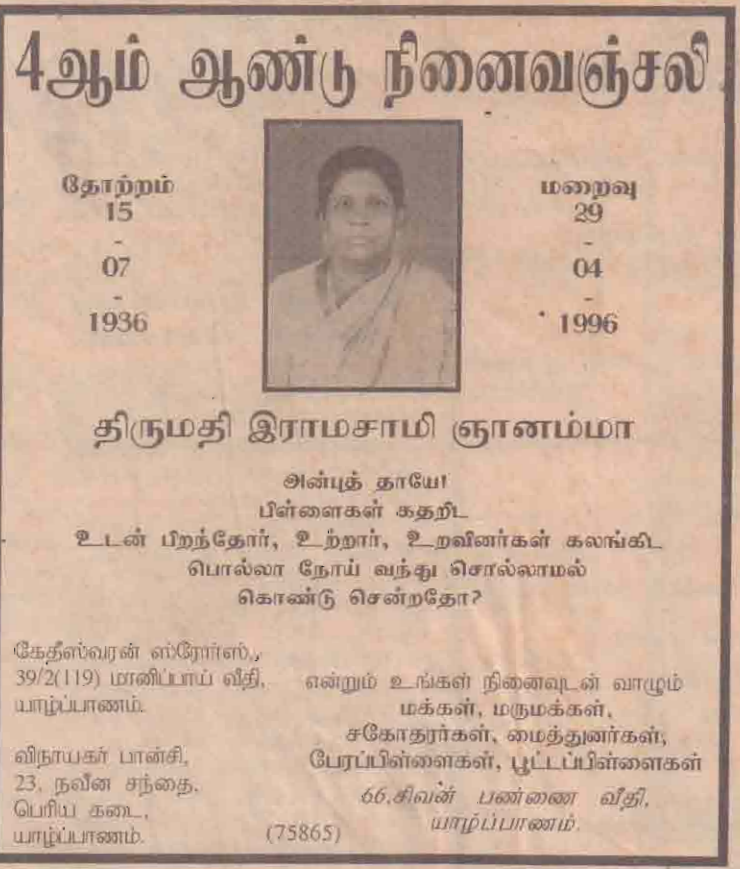 4ஆம் ஆண்டு நினைவஞ்சலி
தோற்றம்
15
-
07
-
1936
மறைவு
29
-
04
-
1996
திருமதி இராமசாமி ஞானம்மா
அன்புத் தாயே!
பிள்ளைகள் கதறிட
உடன் பிறந்தோர், உற்றார், உறவினர்கள் கலங்கிட
பொல்லா நோய் வந்து சொல்லாமல்
கொண்டு சென்றதோ?
கேதீஸ்வரன் ஸ்ரோர்ஸ்,
39/2(119) மானிப்பாய் வீதி,
யாழ்ப்பாணம்.
விநாயகர் பான்சி,
23, நவீன சந்தை,
பெரிய கடை,
யாழ்ப்பாணம்.
(75865)
என்றும் உங்கள் நினைவுடன் வாழும்
மக்கள், மருமக்கள்,
சகோதரர்கள், மைத்துனர்கள்,
பேரப்பிள்ளைகள், பூட்டப்பிள்ளைகள்
66,சிவன் பண்ணை வீதி,
யாழ்ப்பாணம்.